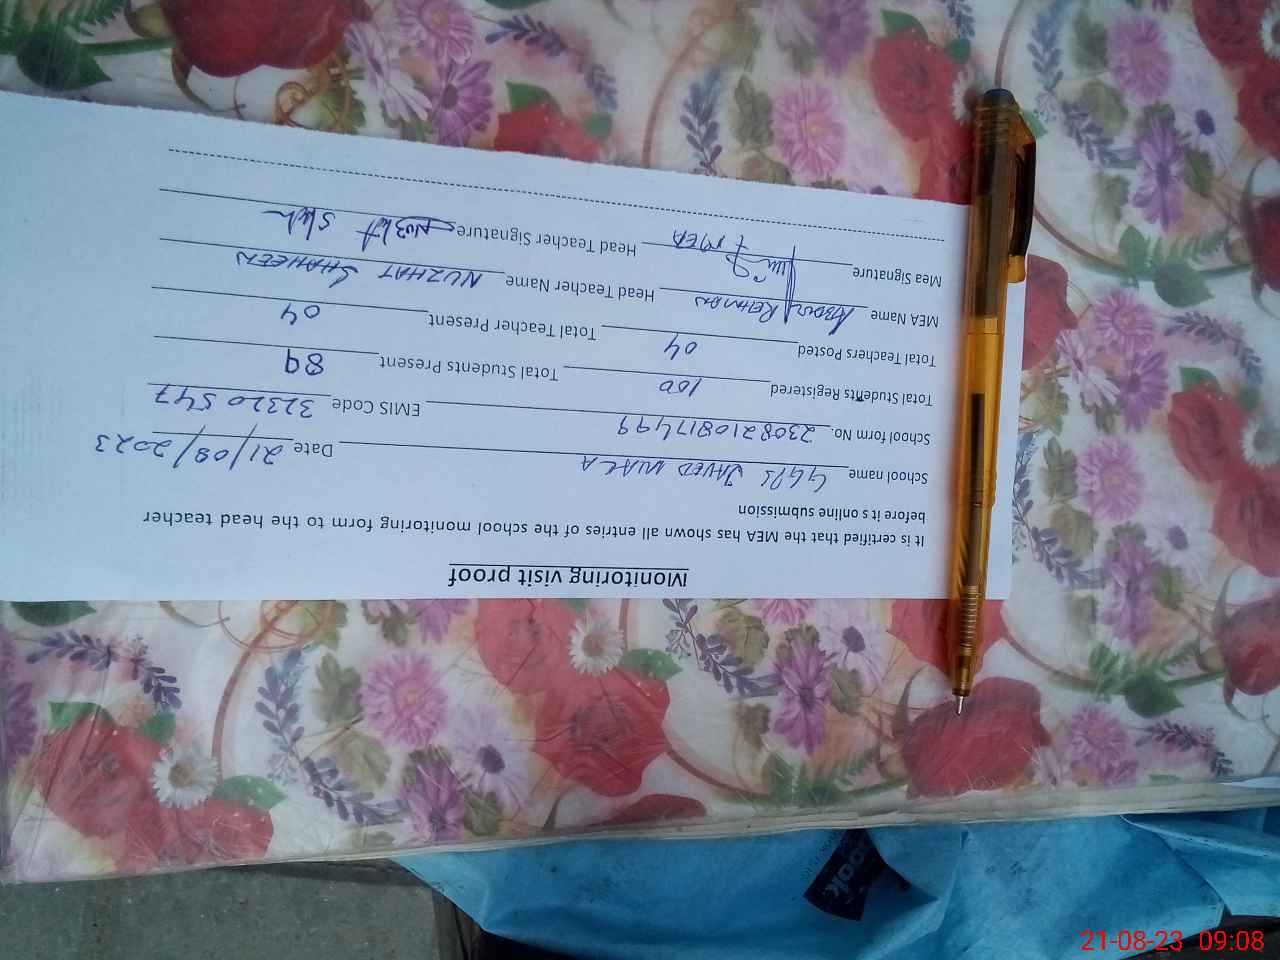 Monitoring visit proof
It is certified that the MEA has shown all entries of the school monitoring form to the head teacher
before it s online submission
School name GGPS JAVED WALA Date 21/08/2023
School form No. 230821081 7499 EMIS Code 32320547
Total Students Registered 100 Total Students Present 89
Total Teachers Posted 04 Total Teacher Present 04
MEA Name ABDUL REHMAN Head Teacher Name NUZHAT SHAHEEN
Mea Signature MEA Head Teacher Signature Nuzhat
look
21-08-23 09:08